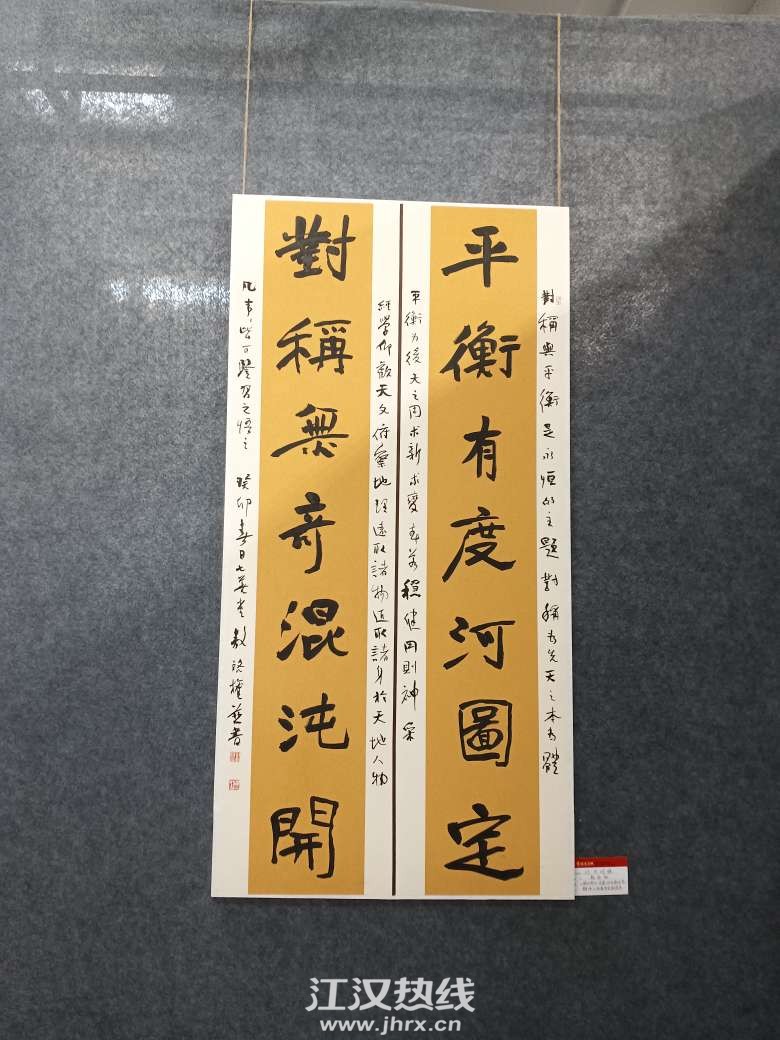 平衡有度河圖定
對稱無奇混沌開
對稱與平衡是永恒的主題對稱為先天之本為體
平衡為後天之用求新求變在若穩健用則神采
經學仰觀天文俯察地理遠取諸物近取諸身於天地人物
凡事皆可鑒習之悟之 癸卯春日
江汉热线
www.jhrx.cn